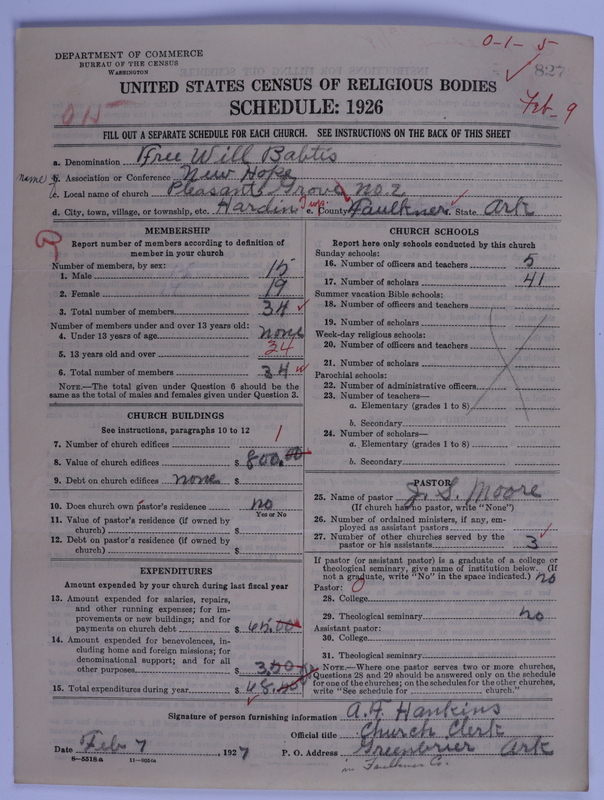 0-1-5
827
DEPARTMENT OF COMMERCE
BUREAU OF THE CENSUS
WASHINGTON
UNITED STATES CENSUS OF RELIGIOUS BODIES
SCHEDULE: 1926
Feb 9
FILL OUT A SEPARATE SCHEDULE FOR EACH CHURCH. SEE INSTRUCTIONS ON THE BACK OF THIS SHEET
a. Denomination Free Will Babtis
name b. Association or Conference New Hope
c. Local name of church Pleasant Grove no. 2
d. City, town, village, or township, etc. Hardin Twp. e. County Faulkner f. State Ark
MEMBERSHIP
Report number of members according to definition of
member in your church
Number of members, by sex:
1. Male 15
2. Female 19
3. Total number of members 34
Number of members under and over 13 years old:
4. Under 13 years of age none
5. 13 years old and over 34
6. Total number of members 34
NOTE.—The total given under Question 6 should be the
same as the total of males and females given under Question 3.
CHURCH BUILDINGS
See instructions, paragraphs 10 to 12
7. Number of church edifices 1
8. Value of church edifices $ 800.00
9. Debt on church edifices none $
10. Does church own pastor's residence no
Yes or No
11. Value of pastor's residence (if owned by
church) $
12. Debt on pastor's residence (if owned by
church) $
EXPENDITURES
Amount expended by your church during last fiscal year
13. Amount expended for salaries, repairs,
and other running expenses; for im-
provements or new buildings; and for
payments on church debt $ 45.00
14. Amount expended for benevolences, in-
cluding home and foreign missions; for
denominational support; and for all
other purposes $ 3.50
15. Total expenditures during year $ 48.50
CHURCH SCHOOLS
Report here only schools conducted by this church
Sunday schools:
16. Number of officers and teachers 5
17. Number of scholars 41
Summer vacation Bible schools:
18. Number of officers and teachers
19. Number of scholars
Week-day religious schools:
20. Number of officers and teachers
21. Number of scholars
Parochial schools:
22. Number of administrative officers
23. Number of teachers—
a. Elementary (grades 1 to 8)
b. Secondary
24. Number of scholars—
a. Elementary (grades 1 to 8)
b. Secondary
PASTOR
25. Name of pastor J. S. Moore
(If church has no pastor, write "None")
26. Number of ordained ministers, if any, em-
ployed as assistant pastors
27. Number of other churches served by the
pastor or his assistants 3
If pastor (or assistant pastor) is a graduate of a college or
theological seminary, give name of institution below. (If
not a graduate, write "No" in the space indicated.) no
Pastor: O
28. College
29. Theological seminary no
Assistant pastor:
30. College
31. Theological seminary
NOTE.—Where one pastor serves two or more churches,
Questions 28 and 29 should be answered only on the schedule
for one of the churches; on the schedules for the other churches,
write "See schedule for church."
Signature of person furnishing information A. F. Hankins
Official title Church Clerk
Date Feb 7, 1927 P. O. Address Greenbrier Ark
8-5518a
in Faulkner Co.